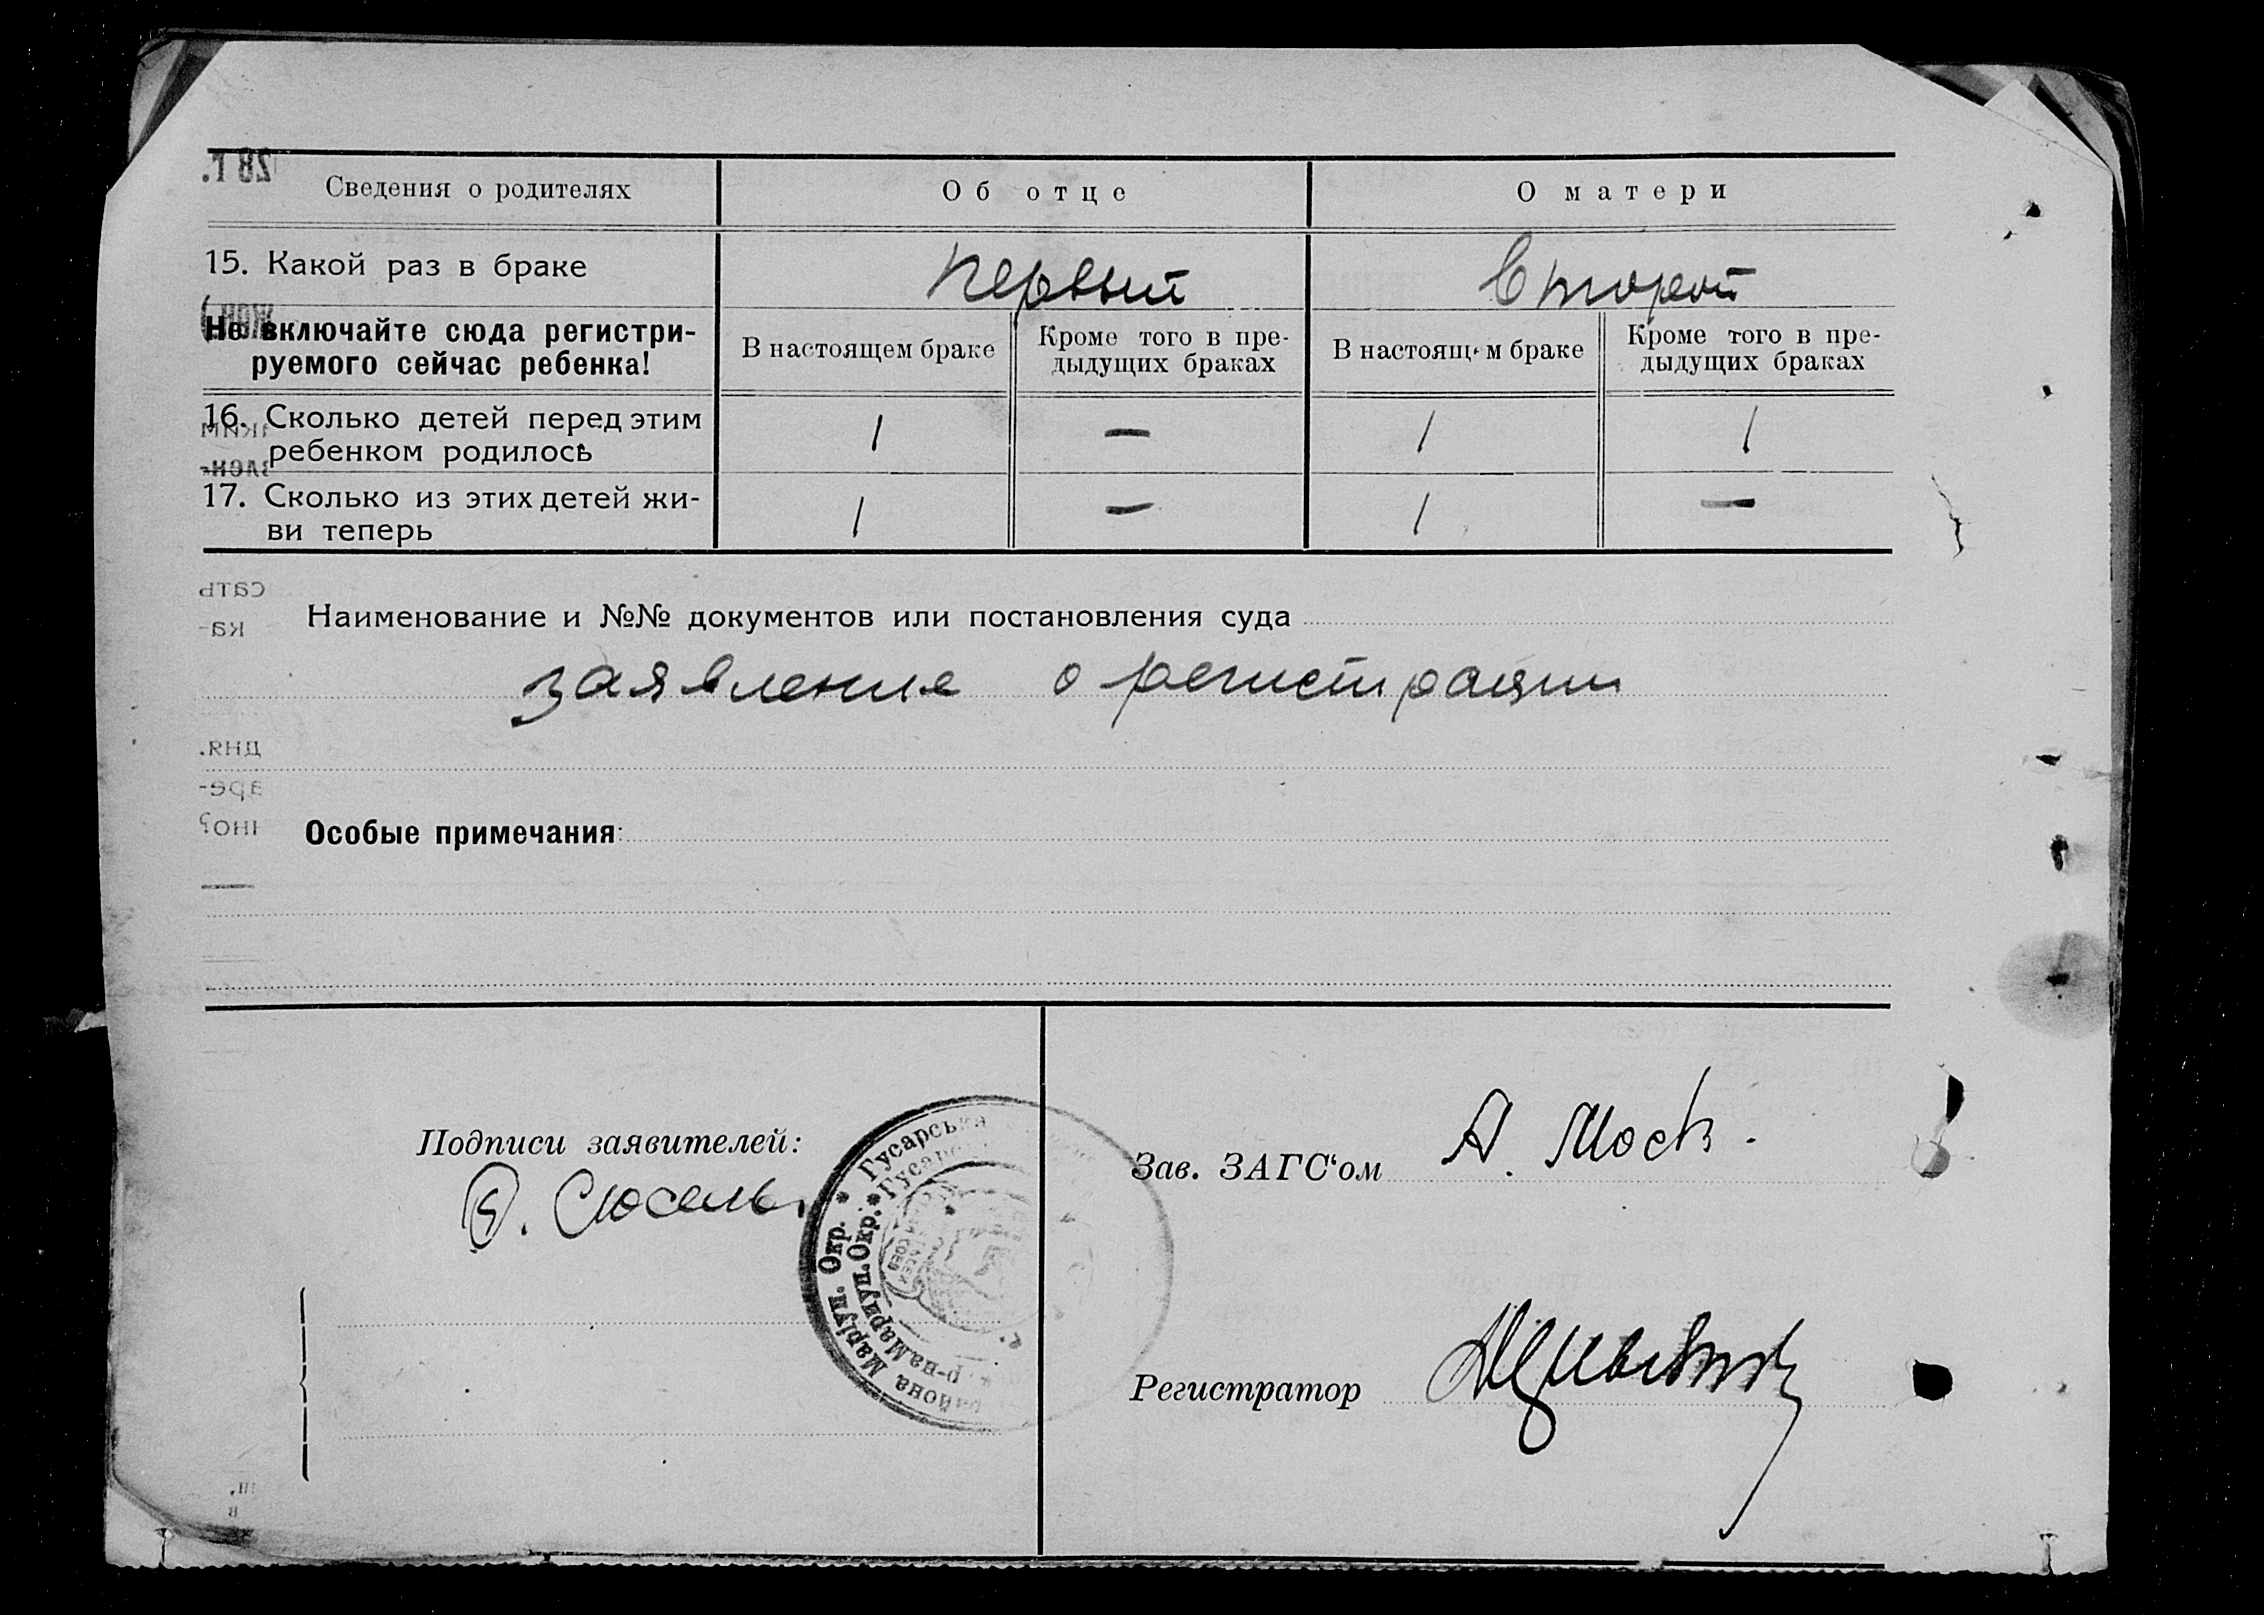 Сведения о родителях
Об отце
О матери
15. Какой раз в браке
первый
второй
Не включайте сюда регистри-
руемого сейчас ребенка!
В настоящем браке
Кроме того в пре-
дыдущих браках
В настоящем браке
Кроме того в пре-
дыдущих браках
16. Сколько детей перед этим
ребенком родилось
1
—
1
1
17. Сколько из этих детей жи-
ви теперь
1
—
1
—
Наименование и №№ документов или постановления суда
заявление о регистрации
Особые примечания:
Подписи заявителей:
Зав. ЗАГС‘ом
А.
Регистратор
* Гусарська
района Маріуп. Окр.
р-на Мариуп. Окр. *